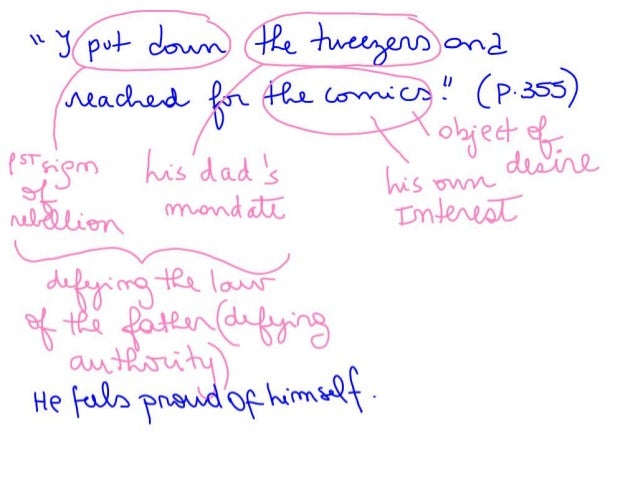 "I put down the tweezers and
reached for the comics." (p.355)
1ST sign
of
rebellion
his dad's
mandate
his own
Interest
object of
desire
defying the law
of the father (defying
authority)
He feels proud of himself.